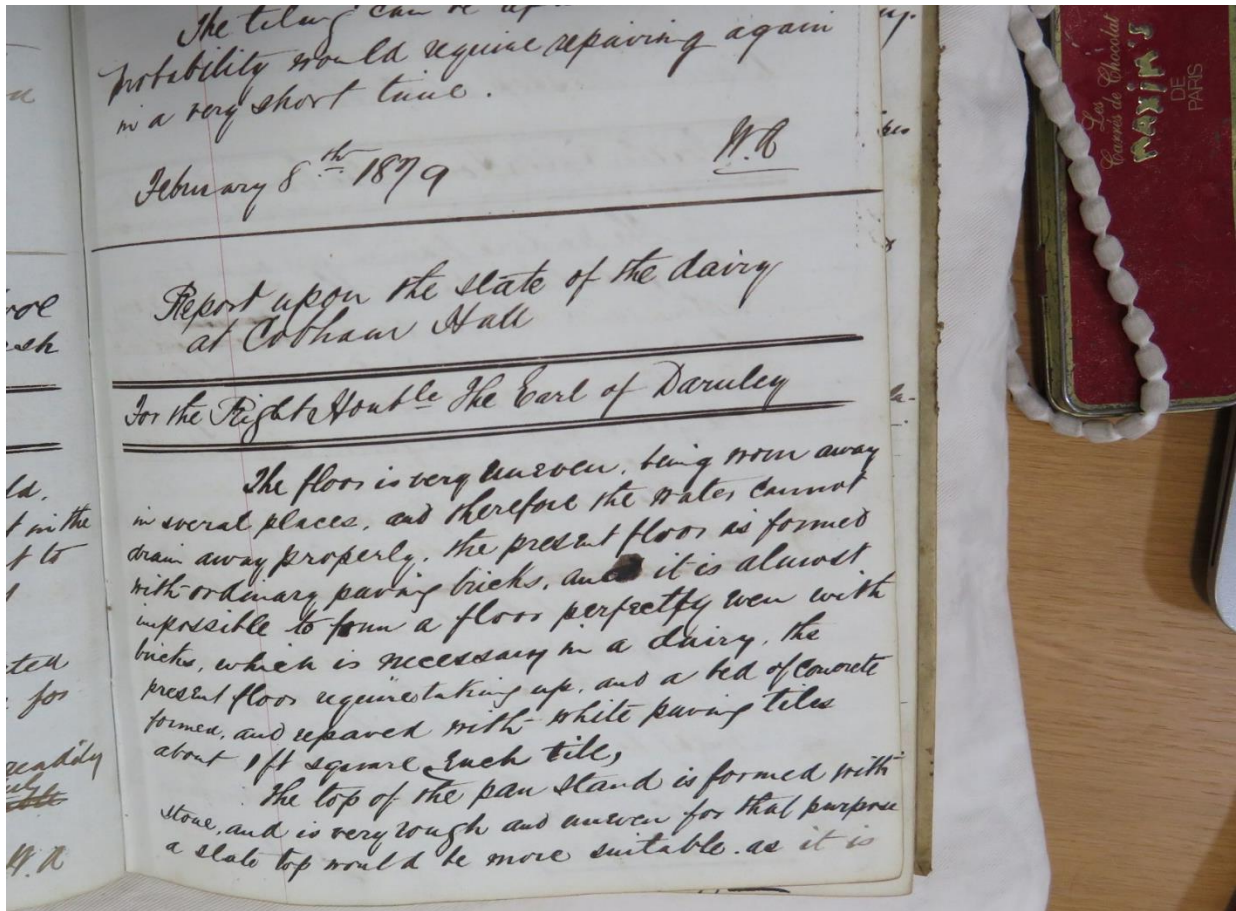 The tiling can be
probability would require repaving again
in a very short time.
W.R
February 8th 1879
Report upon the state of the dairy
at Cobham Hall
For the Right Honble The Earl of Darnley
The floor is very uneven, being worn away
in several places, and therefore the water cannot
drain away properly. the present floor is formed
with ordinary paving bricks, and it is almost
impossible to form a floor perfectly even with
bricks, which is necessary in a dairy. the
present floor require taking up, and a bed of concrete
formed, and repaved with white paving tiles
about 1ft square Each tile,
The top of the pan stand is formed with
stone, and is very rough and uneven for that purpose
a slate top would be more suitable. as it is
in the
t to
for
readily
W.R
Les
Carrés de Chocolat
MAXIM'S
DE
PARIS